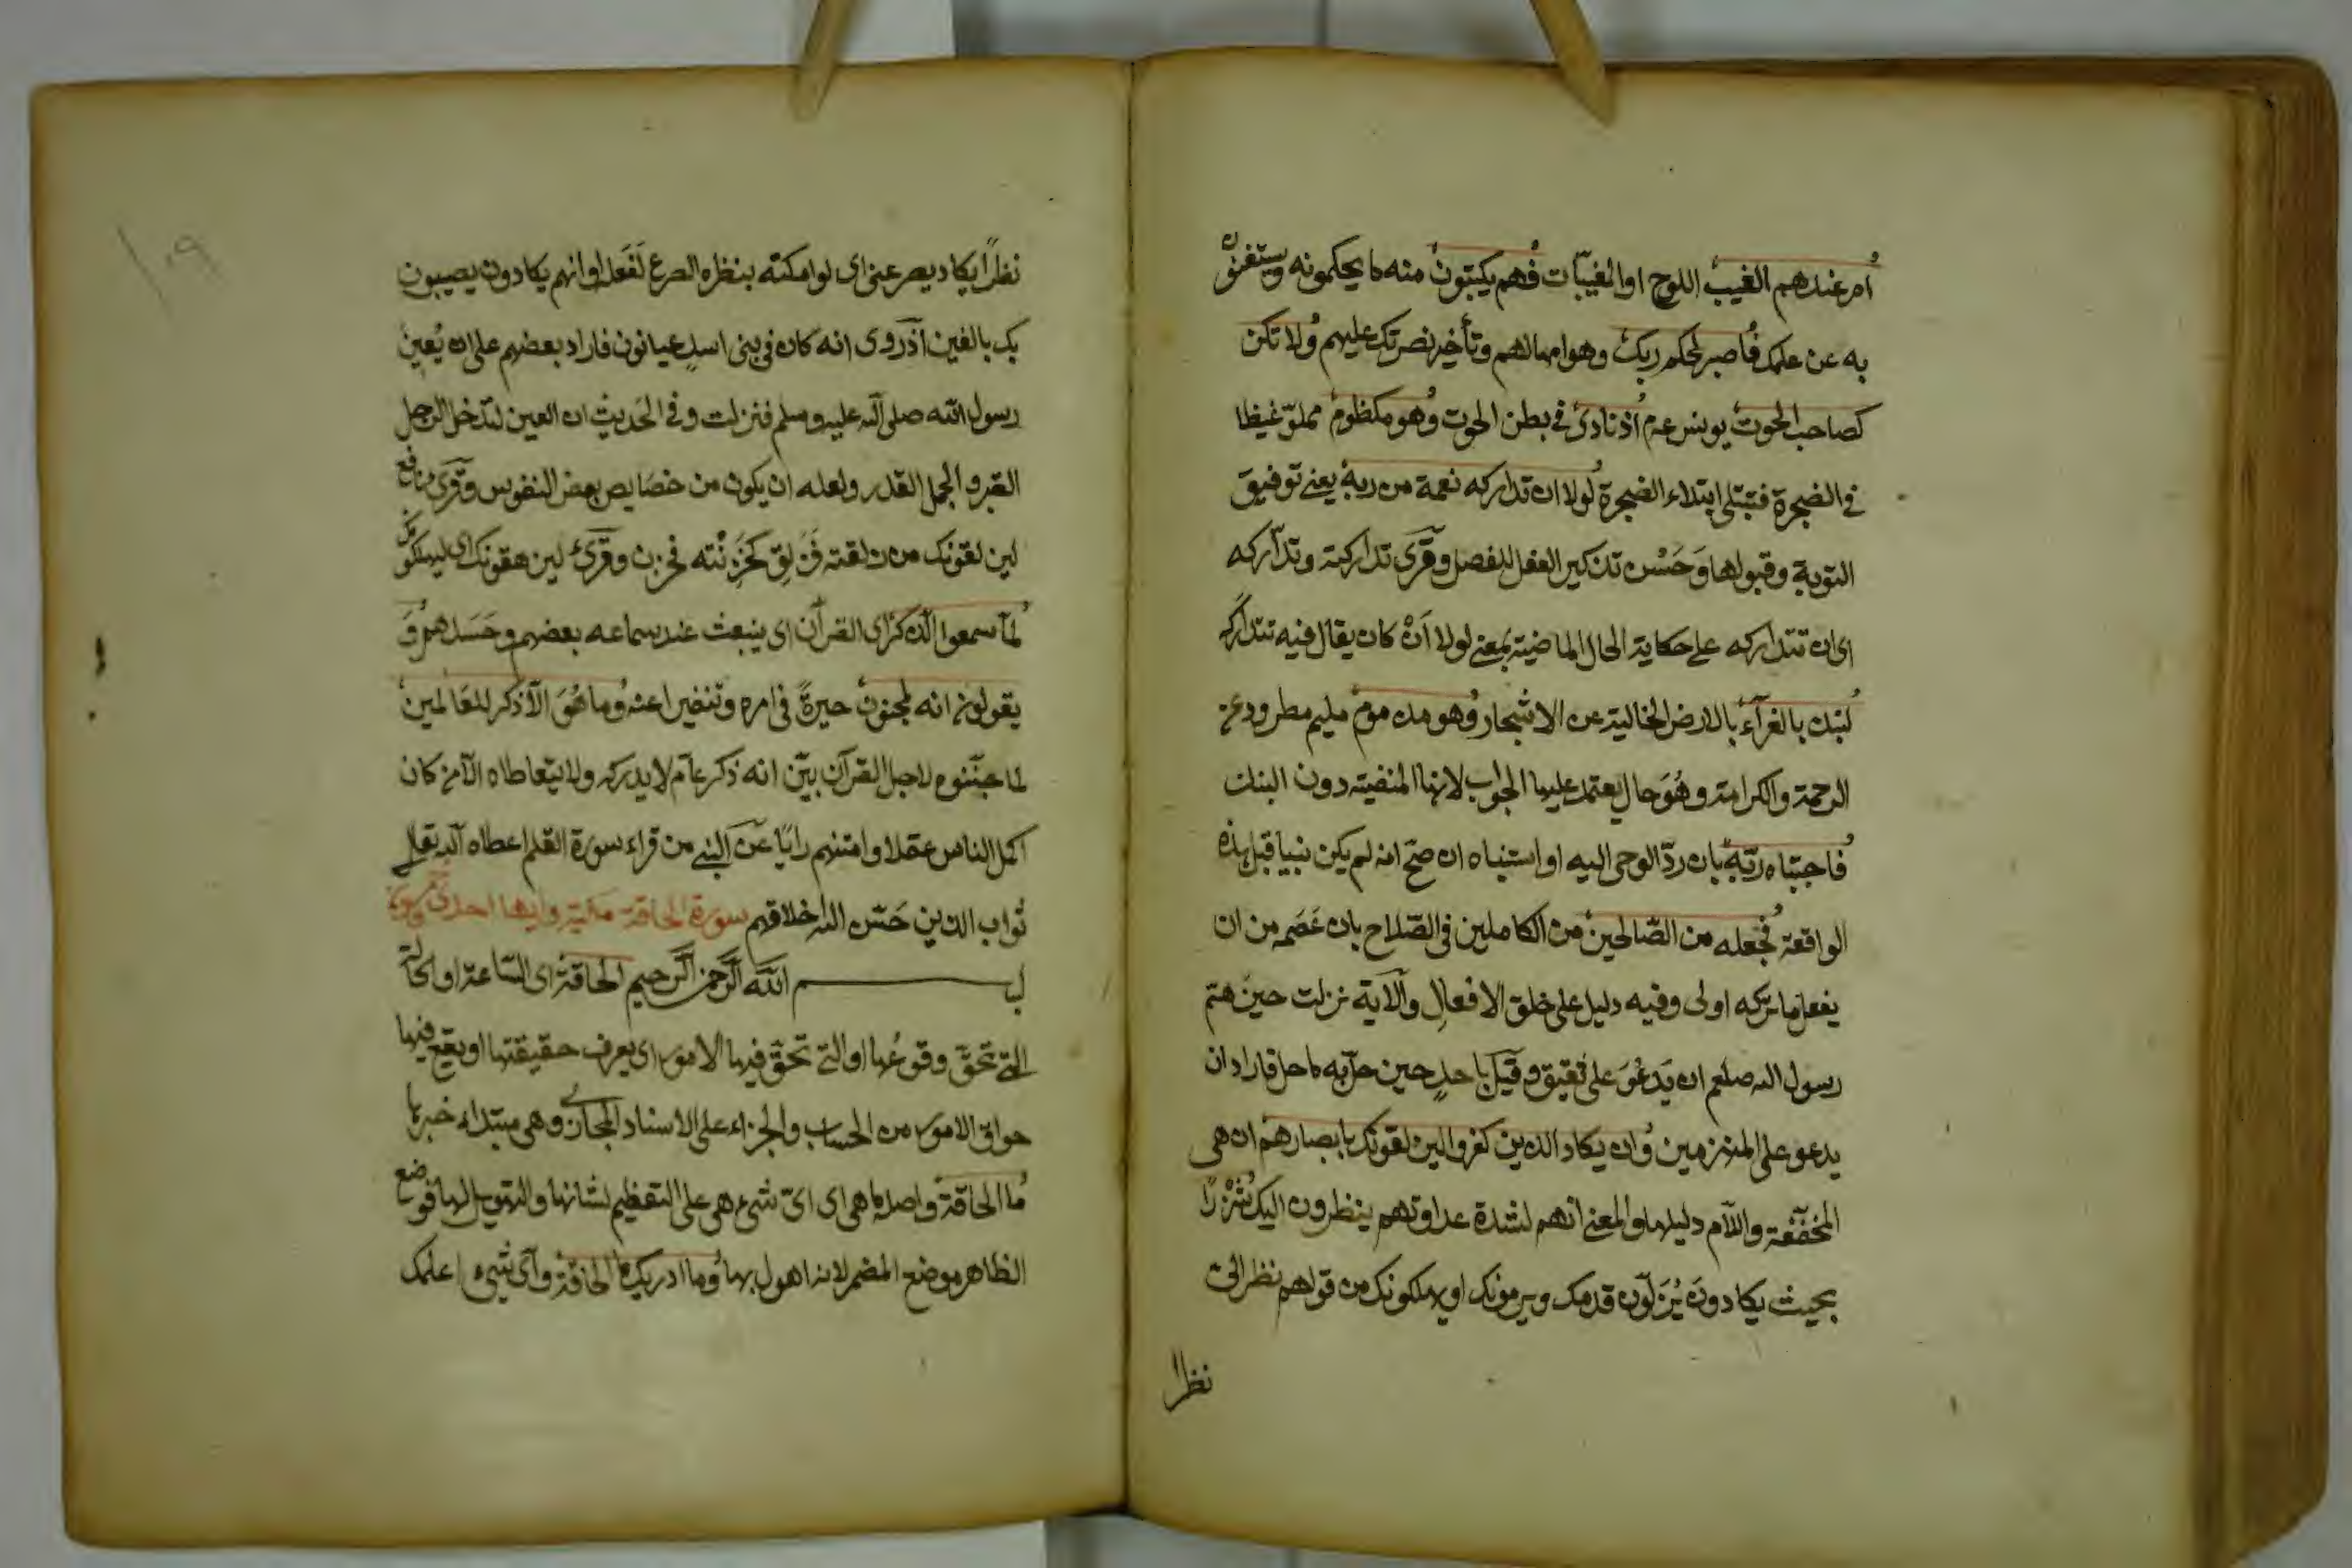 ام عندهم الغيب اللوح او المغيبات فهم يكتبون منه ما يحكمونه ويستغنون
به عن علمك فاصبر لحكم ربك وهو امهالهم وتأخير نصرتك عليهم ولا تكن
كصاحب الحوت يونس عم اذ نادى في بطن الحوت وهو مكظوم مملو غيظا
في الضجرة فتبتلى ابتلاء الضجرة لولا ان تداركه نعمة من ربه يعني توفيق
التوبة وقبولها وحسن تذكير الفعل للفصل وقرئ تداركته وتداركه
اى ان تتداركه على حكاية الحال الماضية بمعنى لولا ان كان يقال فيه تتداركه
لنبذ بالعرآء بالارض الخالية عن الاشجار وهو مذموم مليم مطرود عن
الرحمة والكرامة وهو حال يعتمد عليها الجواب لانها المنفية دون النبذ
فاجتباه ربه بان رد الوحى اليه او استنباه ان صح انه لم يكن نبيا قبل هذه
الواقعة فجعله من الصالحين من الكاملين في الصلاح بان عصمه من ان
يفعل ما تركه اولى وفيه دليل على خلق الافعال والآية نزلت حين هم
رسول الله صلعم ان يدعو على ثقيف وقيل باحد حين حل به ما حل فاراد ان
يدعو على المنهزمين وان يكاد الذين كفروا ليزلقونك بابصارهم ان هى
المخففة واللام دليلها والمعنى انهم لشدة عداوتهم ينظرون اليك شزرا
بحيث يكادون يزلون قدمك ويرمونك او يهلكونك من قولهم نظر الى
نظرا
١٠٩
نظرا يكاد يصرعني اى لو امكنه بنظره الصرع لفعله او انهم يكادون يصيبون
بك بالعين اذ روى انه كان في بنى اسد عيانون فاراد بعضهم على ان يعين
رسول الله صلى الله عليه وسلم فنزلت وفي الحديث ان العين لتدخل الرجل
القبر والجمل القدر ولعله ان يكون من خصايص بعض النفوس وقرئ نافع
ليزلقونك من زلقته فزلق كحزنته فحزن وقرئ ليزهقونك اى ليهلكونك
لما سمعوا الذكر اى القرآن اى ينبعث عند سماعه بعضهم وحسدهم و
يقولون انه لمجنون حيرة في امره وتنفيرا عنه وما هو الا ذكر للعالمين
لما جننوه لاجل القرآن بين انه ذكر عام لا يدركه ولا يتعاطاه الا من كان
اكمل الناس عقلا وامتنهم رايا عن النبي من قراء سورة القلم اعطاه الله تعالى
ثواب الذين حسن الله اخلاقهم سورة الحاقة مكية وايها احدى وخمسون
بسم الله الرحمن الرحيم الحاقة اى الساعة او الحالة
التي تحق وقوعها او التي تحق فيها الامور اى يعرف حقيقتها او يقع فيها
حواق الامور من الحساب والجزاء على الاسناد المجازى وهى مبتداء خبرها
ما الحاقة واصله ما هى اى اى شىء هى على التعظيم لشانها والتهويل لها فوضع
الظاهر موضع المضمر لانه اهول بها وما ادريك ما الحاقة واى شىء اعلمك